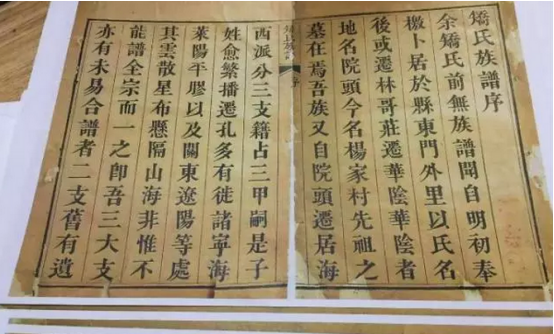 矯氏族譜序
余矯氏前無族譜聞自明初奉
檄卜居於縣東門外里以氏名
後或遷林哥莊遷華陰華陰者
地名院頭今名楊家村先祖之
墓在焉吾族又自院頭遷居海
序
西派分三支籍占三甲嗣是子
姓愈繁播遷孔多有徙諸寧海
萊陽平膠以及關東遼陽等處
其雲散星布懸隔山海非惟不
能譜全宗而一之卽吾三大支
亦有未易合譜者二支舊有遺